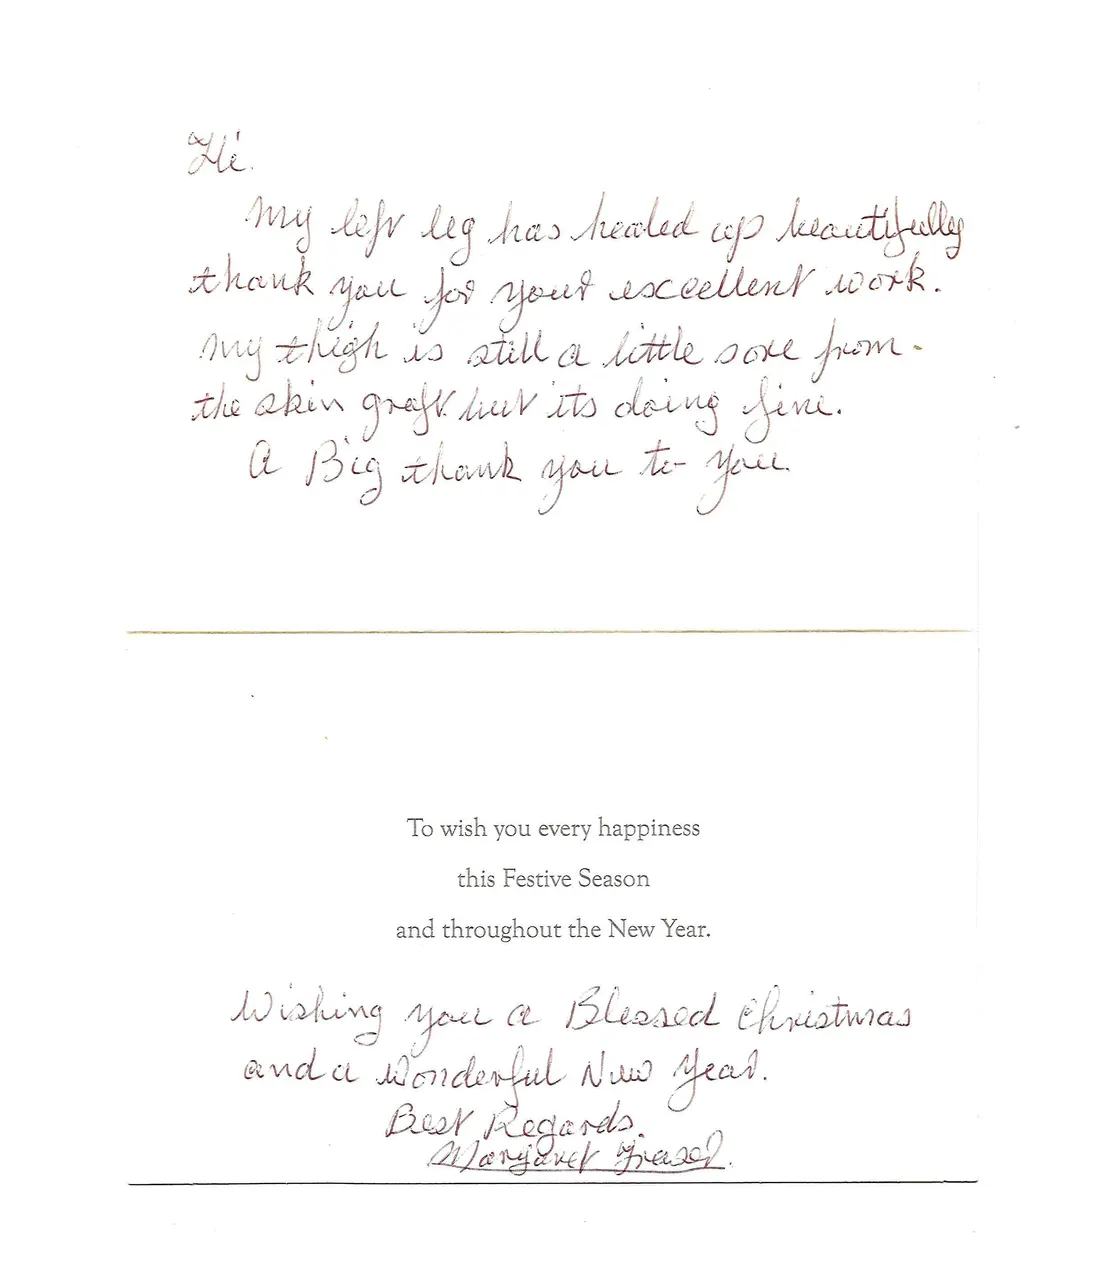 Hi.
My left leg has healed up beautifully
thank you for your excellent work.
My thigh is still a little sore from
the skin graft but its doing fine.
A Big thank you to you.
To wish you every happiness
this Festive Season
and throughout the New Year.
Wishing you a Blessed Christmas
and a Wonderful New Year.
Best Regards.
Margaret Fraser.